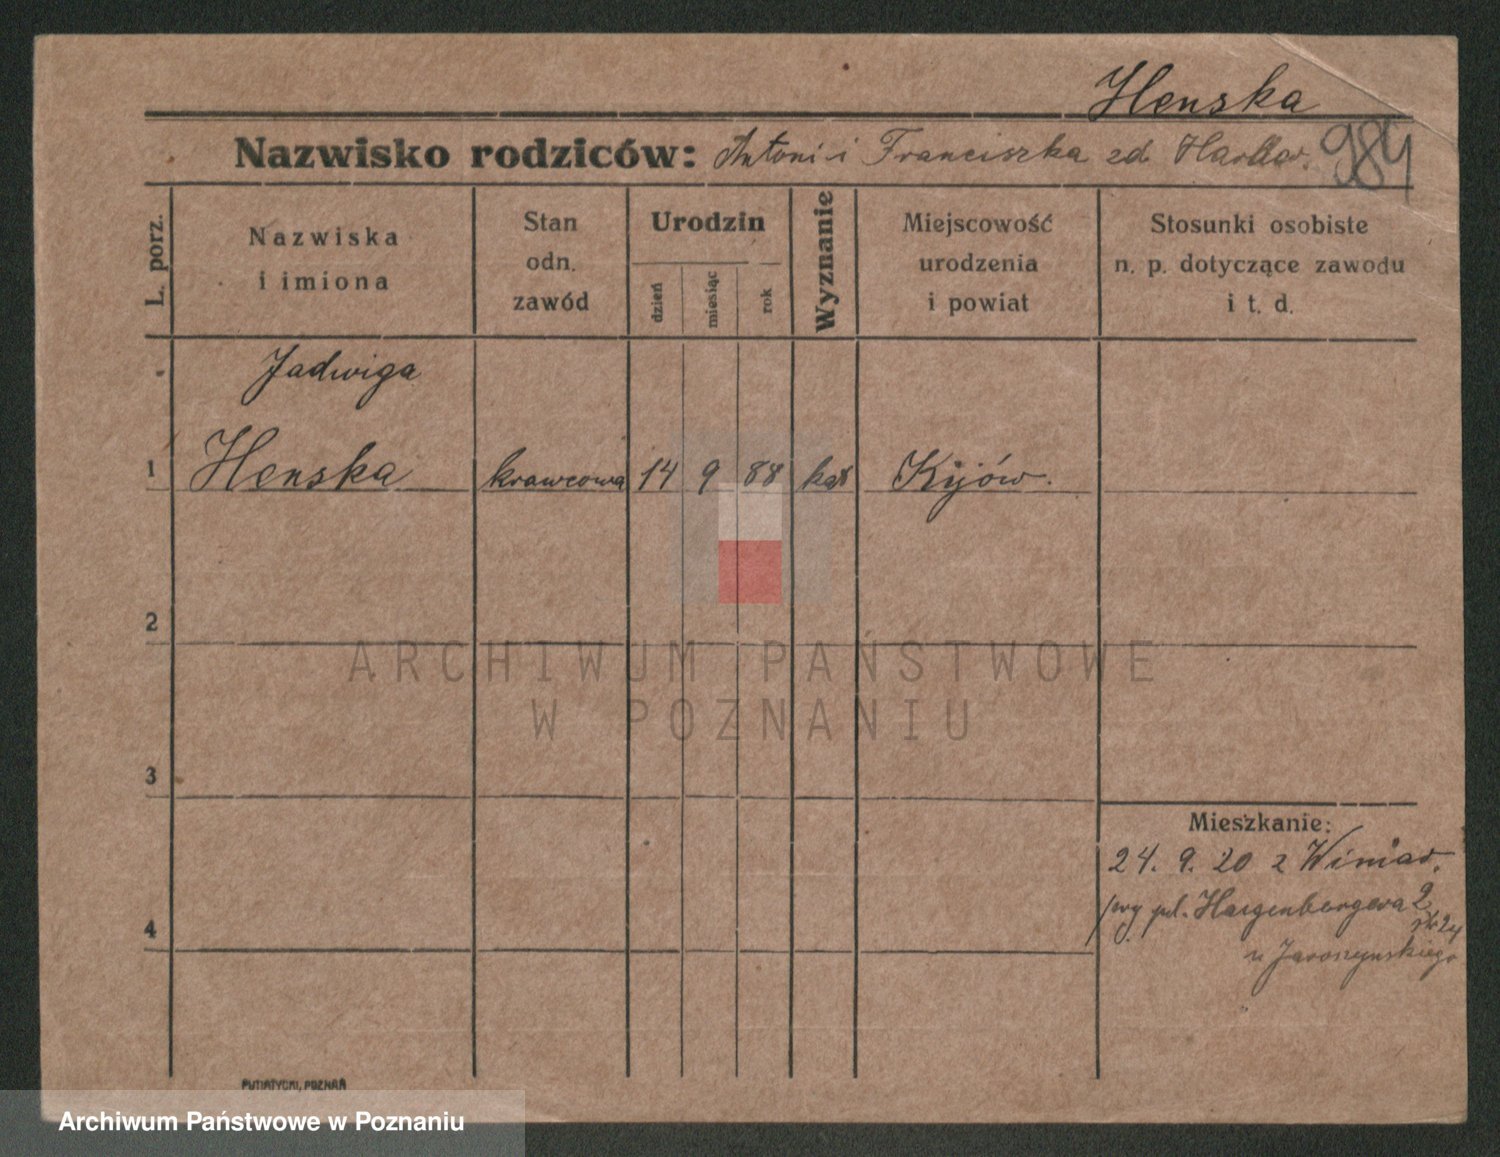 Henska
Nazwisko rodziców: Antoni i Franciszka zd
984
L. porz.
Nazwiska
i imiona
Stan
odn.
zawód
Urodzin
dzień
miesiąc
rok
Wyznanie
Miejscowość
urodzenia
i powiat
Stosunki osobiste
n. p. dotyczące zawodu
i t. d.
Jadwiga
1 Henska krawcowa 14 9 88 kat Kijów.
2
ARCHIWUM PAŃSTWOWE
W POZNANIU
3
Mieszkanie:
24. 9. 20 z Winiar.
pl. 2
4
u Jaroszynskiego
PUTIATYCKI, POZNAŃ
Archiwum Państwowe w Poznaniu